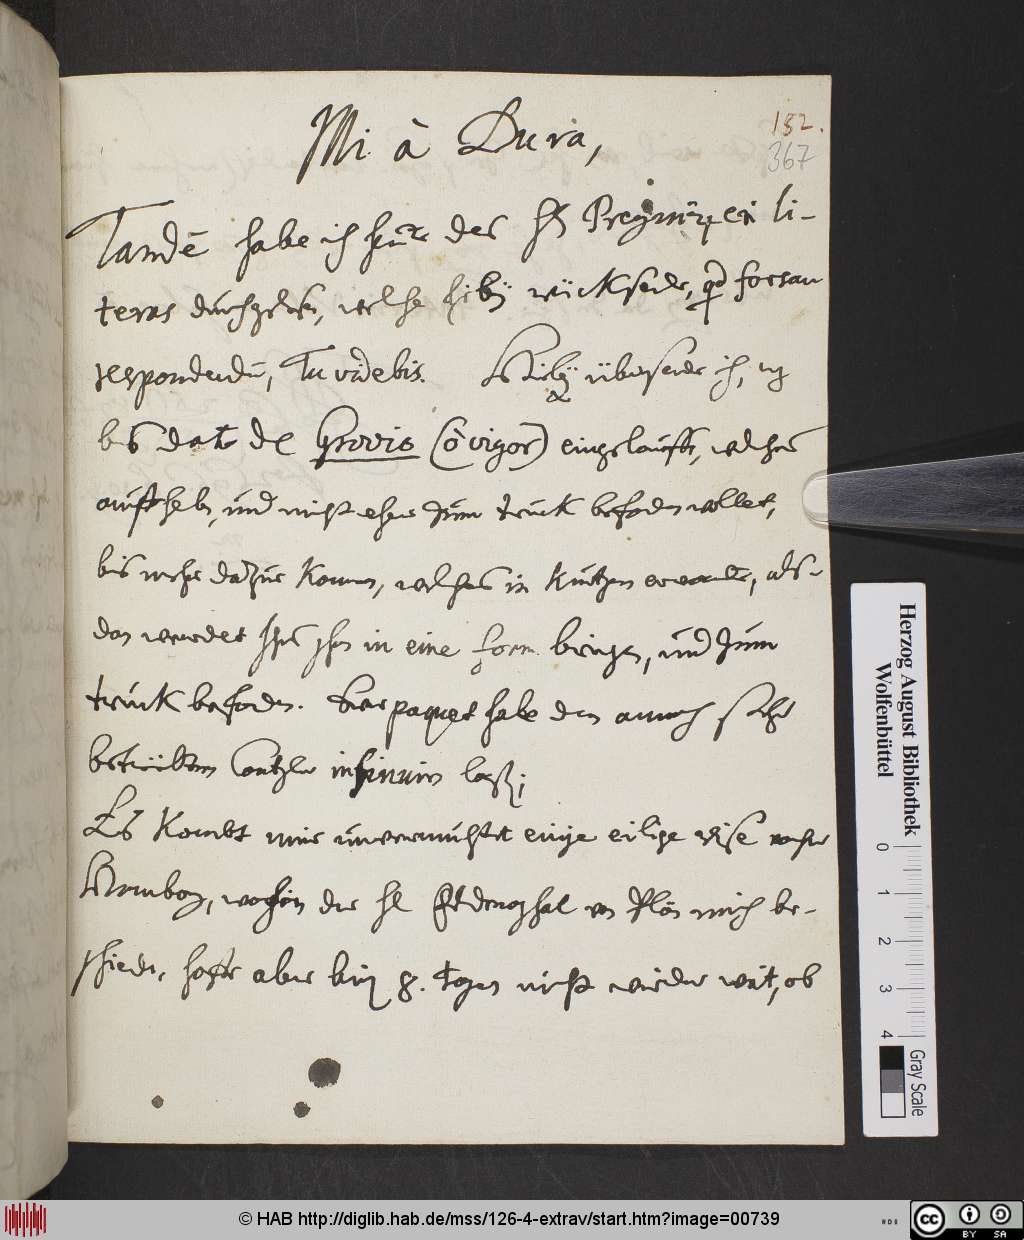 Mi à Dura,
152.
367
Tandē habe ich heute des H. li-
teras durchgelesen, welche hiebÿ rücksende, qd forsan
respondendū, Tu videbis. Hiebÿ übersende ich,
bis dato de Grovio (ô vigor) eingelaufft, welches
auffheben, und nicht eher zum truck befodern wollet,
bis mehr dazue kommen, welches in kurtzen erwarte, als-
dan werdet Ihr Ihm in eine form bringen, und zum
truck befodern. paquet habe den annoch
betrübten Cantzler insinuirn laßen;
Es kombt mir unvermuhtet einige eilige reise nacher
Hamborg, wohin der H. von Plön mich be-
schieden, hoffe aber binnen 8. tagen nicht wieder weit, ob
Herzog August Bibliothek
Wolfenbüttel
0 1 2 3 4
Gray Scale
© HAB http://diglib.hab.de/mss/126-4-extrav/start.htm?image=00739
cc BY SA